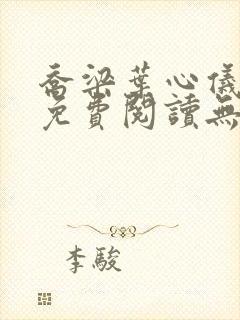 喬梁葉心儀
免費閱讀無
李駿